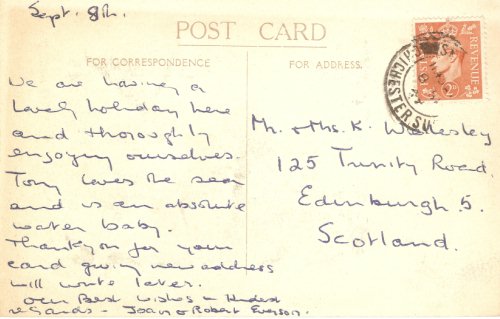 Sept. 8th.
POST CARD
FOR CORRESPONDENCE
FOR ADDRESS.
We are having a
lovely holiday here
and thoroughly
enjoying ourselves.
Tony loves the sea
and is an absolute
water baby.
Thankyou for your
card giving new address
will write later.
Our Best wishes & Kindest
regards - Joan & Robert Everson.
Mr. & Mrs. K. Wellesley
125 Trinity Road,
Edinburgh 5.
Scotland.
REVENUE
CHICHESTER SUSSEX